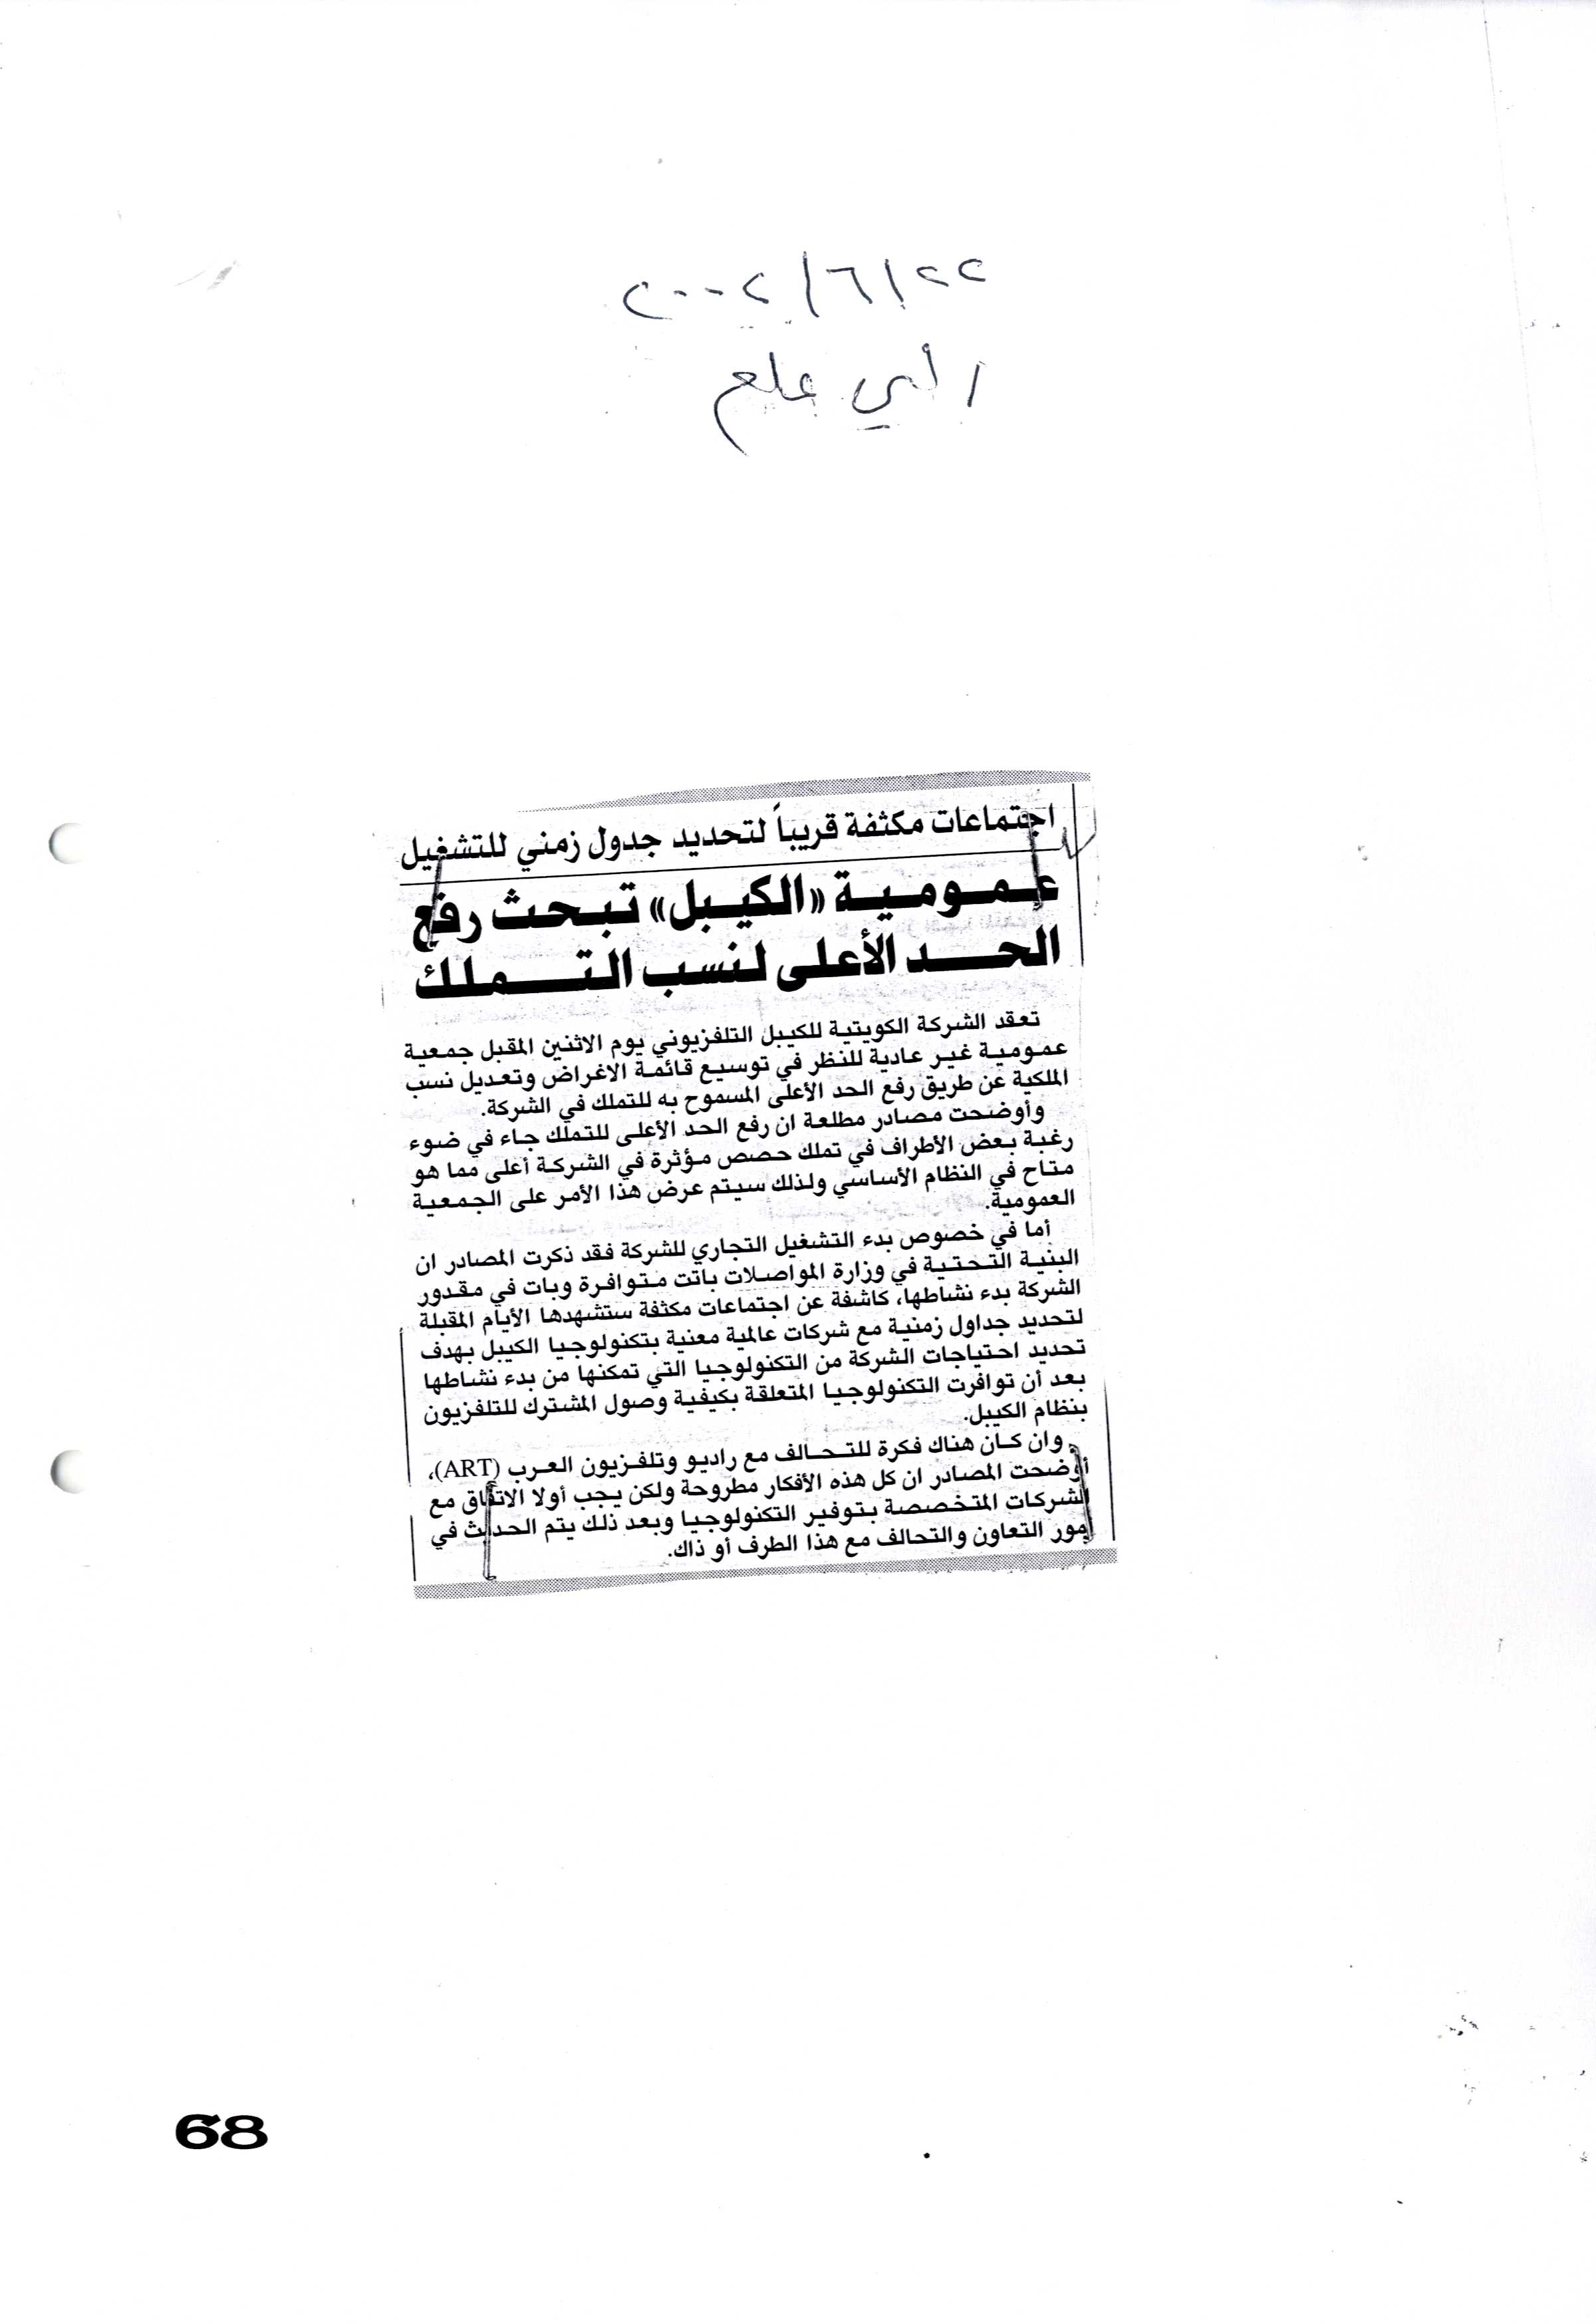 ٢٢/٦/٢٠٠٢
رأي عام
اجتماعات مكثفة قريباً لتحديد جدول زمني للتشغيل
عمومية «الكيبل» تبحث رفع
الحد الأعلى لنسب التملك
تعقد الشركة الكويتية للكيبل التلفزيوني يوم الاثنين المقبل جمعية
عمومية غير عادية للنظر في توسيع قائمة الاغراض وتعديل نسب
الملكية عن طريق رفع الحد الأعلى المسموح به للتملك في الشركة.
وأوضحت مصادر مطلعة ان رفع الحد الأعلى للتملك جاء في ضوء
رغبة بعض الأطراف في تملك حصص مؤثرة في الشركة أعلى مما هو
متاح في النظام الأساسي ولذلك سيتم عرض هذا الأمر على الجمعية
العمومية.
أما في خصوص بدء التشغيل التجاري للشركة فقد ذكرت المصادر ان
البنية التحتية في وزارة المواصلات باتت متوافرة وبات في مقدور
الشركة بدء نشاطها، كاشفة عن اجتماعات مكثفة ستشهدها الأيام المقبلة
لتحديد جداول زمنية مع شركات عالمية معنية بتكنولوجيا الكيبل بهدف
تحديد احتياجات الشركة من التكنولوجيا التي تمكنها من بدء نشاطها
بعد أن توافرت التكنولوجيا المتعلقة بكيفية وصول المشترك للتلفزيون
بنظام الكيبل.
وان كان هناك فكرة للتحالف مع راديو وتلفزيون العرب (ART)،
أوضحت المصادر ان كل هذه الأفكار مطروحة ولكن يجب أولا الاتفاق مع
الشركات المتخصصة بتوفير التكنولوجيا وبعد ذلك يتم الحديث في
أمور التعاون والتحالف مع هذا الطرف أو ذاك.
68